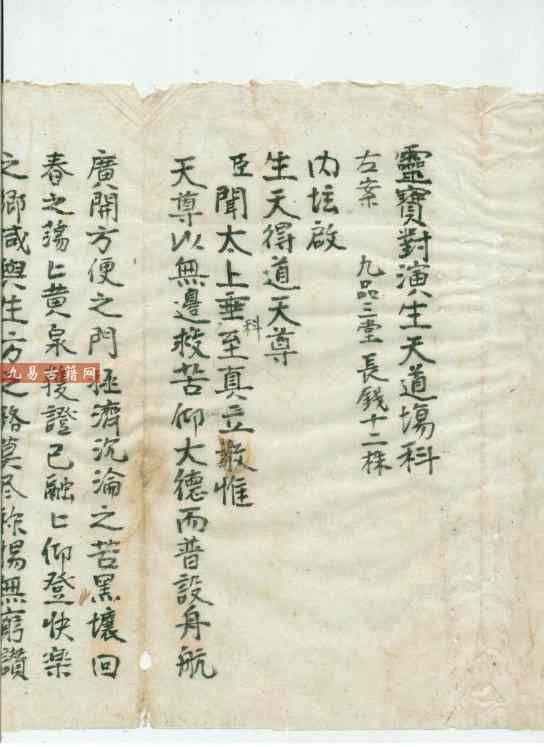 靈寶對演生天道場科
左案 九品三堂 長錢十二株
內坛啟
生天得道天尊
臣聞太上垂科至真立教惟
天尊以無邊救苦仰大德而普設舟航
廣開方便之門拯濟沉淪之苦黑壤回
春之蕩匕黄泉授證已融匕仰登快楽
之鄉咸與生方之路莫尽称揚無窮讚
九易古籍网